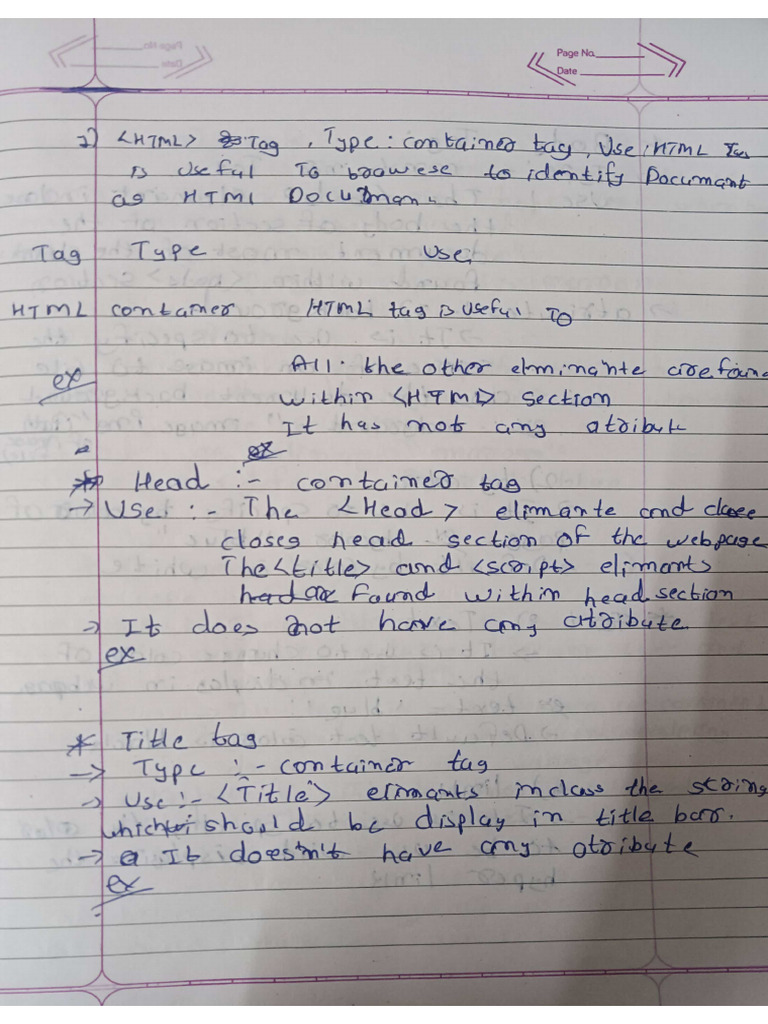 Page No.
Date
1) <HTML> Tag, Type: container tag, Use: HTML
is useful To browese to identify Documant
as HTML Documan
Tag Type Use
HTML container HTML tag is useful To
ex All the other eliminante are foun
within <HTML> section
It has not any atribute
ex
* Head :- container tag
→ Use :- The <Head> elimante and
closes head section of the webpage
The <title> and <script> elimants
found within head section
→ It does not have any atribute.
ex
* Title tag
→ Type :- container tag
→ Use :- <Title> elimants incloss the string
which should be display in title bar.
→ It doesn't have any atribute
ex